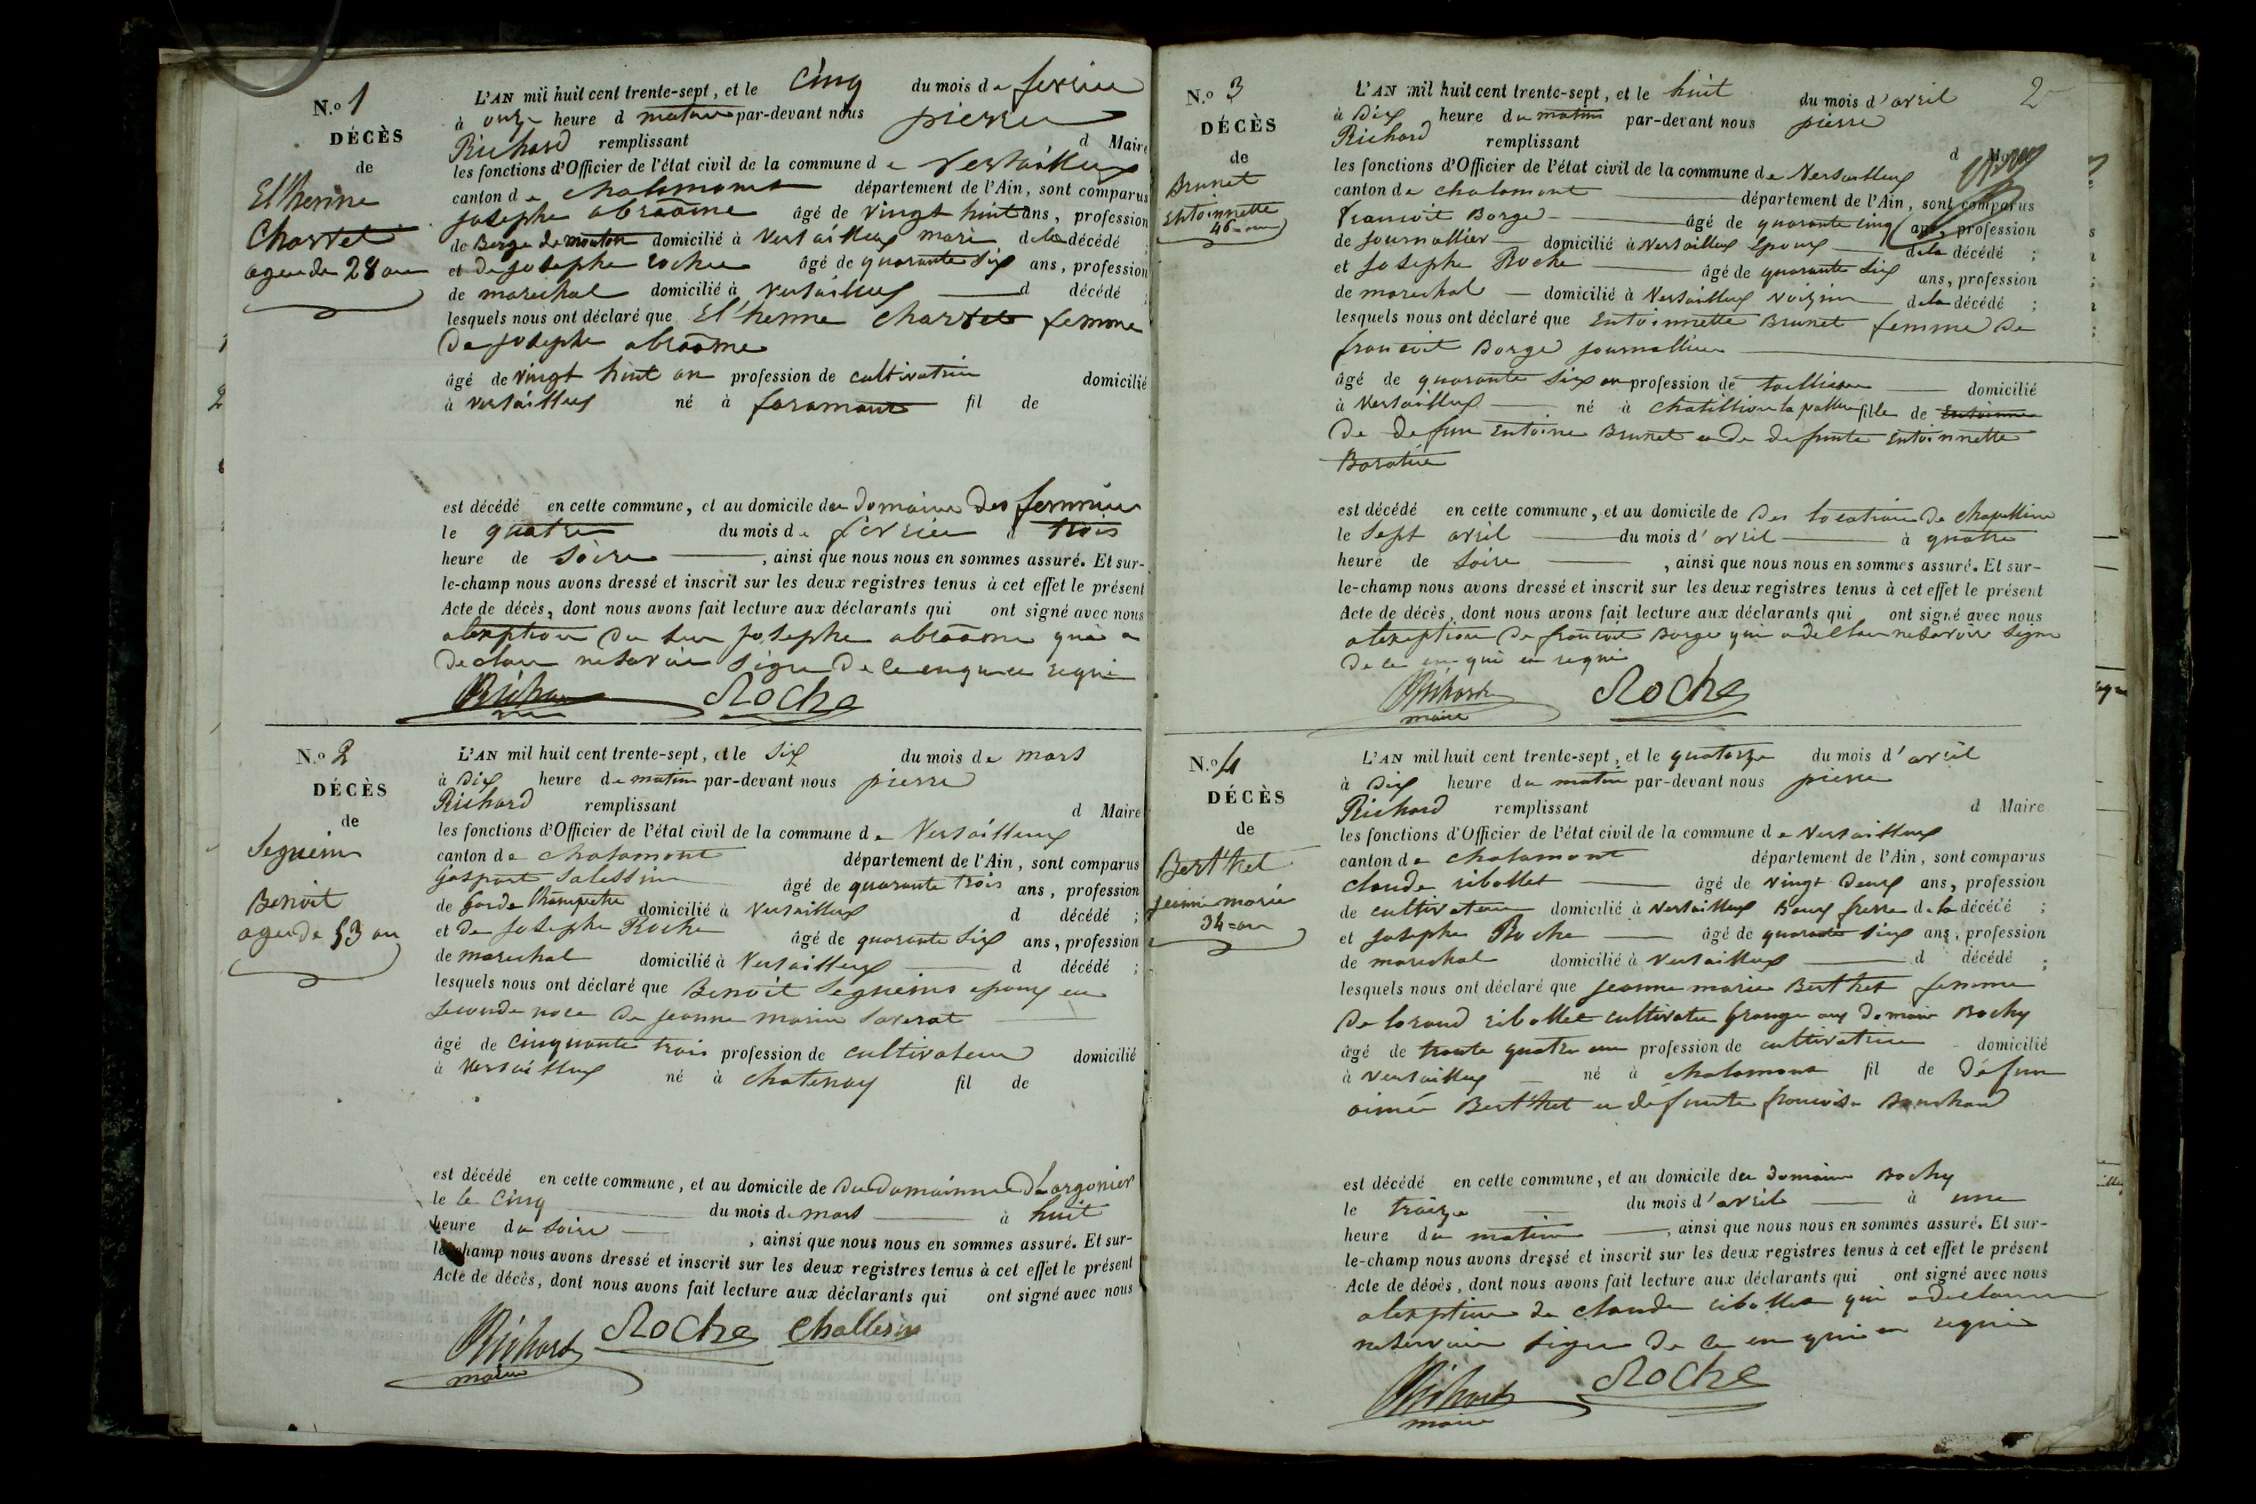 N.o 1
DÉCÈS
de
El'henne
Charvet
agee de 28 an
L'AN mil huit cent trente-sept, et le cinq du mois de fevrier
à onze heure d matin par-devant nous pierre
Richard remplissant d Maire
les fonctions d'Officier de l'état civil de la commune de Versailleux
canton de chalamont département de l'Ain, sont comparus
josephe abraàme âgé de vingt huit ans, profession
de Berge de mouton domicilié à Versailleux mari dela décédé ;
et de josephe roche âgé de quarante six ans, profession
de marechal domicilié à Versailleux d décédé ;
lesquels nous ont déclaré que El'henne charvet femme
De josephe abraàme
âgé de vingt huit an profession de cultivatrice domicilié
à versailleux né à faramant fil de
est décédé en cette commune, et au domicile du Domaine Des
le quatre du mois de février à trois
heure de soire, ainsi que nous nous en sommes assuré. Et sur-
le-champ nous avons dressé et inscrit sur les deux registres tenus à cet effet le présent
Acte de décès, dont nous avons fait lecture aux déclarants qui ont signé avec nous
alexption du sieur josephe abraàme qui a
declare ne savoir signe De ce enquis requi
Richard Roche
N.o 2
DÉCÈS
de
Seguin
Benoit
age de 53 an
L'AN mil huit cent trente-sept, et le six du mois de mars
à Dix heure de matin par-devant nous pierre
Richard remplissant d Maire
les fonctions d'Officier de l'état civil de la commune de Versailleux
canton de chalamont département de l'Ain, sont comparus
gaspart âgé de quarante trois ans, profession
de garde domicilié à Versailleux d décédé ;
et de josephe Roche âgé de quarante six ans, profession
de marechal domicilié à Versailleux d décédé ;
lesquels nous ont déclaré que Benoit Seguins epoux en
seconde noce De jeanne marie
âgé de cinquante trois profession de cultivateur domicilié
à Versailleux né à chatenay fil de
est décédé en cette commune, et au domicile de Du Domainne
le le cinq du mois de mars à huit
heure du soire, ainsi que nous nous en sommes assuré. Et sur-
le-champ nous avons dressé et inscrit sur les deux registres tenus à cet effet le présent
Acte de décès, dont nous avons fait lecture aux déclarants qui ont signé avec nous
Richard Roche
maire
2
N.o 3
DÉCÈS
de
Brunet
Entoinnette
46 = an
L'AN mil huit cent trente-sept, et le huit du mois d'avril
à Dix heure du matin par-devant nous pierre
Richard remplissant d Maire
les fonctions d'Officier de l'état civil de la commune de Versailleux
canton de chalamont département de l'Ain, sont comparus
francoit Borge âgé de quarante cinq ans, profession
de journallier domicilié à Versailleux Epoux dela décédé ;
et josephe Roche âgé de quarante six ans, profession
de marechal domicilié à Versailleux voizin dela décédé ;
lesquels nous ont déclaré que Entoinnette Brunet femme De
francoit Borge journallier
âgé de quarante six an profession de domicilié
à Versailleux né à chatillion la pallue fille de
De defun Entoine Brunet et De defunte Entoinnette
est décédé en cette commune, et au domicile de Des location De
le sept avril du mois d'avril à quatre
heure de soire, ainsi que nous nous en sommes assuré. Et sur-
le-champ nous avons dressé et inscrit sur les deux registres tenus à cet effet le présent
Acte de décès, dont nous avons fait lecture aux déclarants qui ont signé avec nous
alexeption De francoit Borge qui a declare ne savoir signe
De ce en qui en requi
Richard Roche
maire
N.o 4
DÉCÈS
de
Bert'het
jeanne marie
34 = an
L'AN mil huit cent trente-sept, et le quatorze du mois d'avril
à Dix heure du matin par-devant nous pierre
Richard remplissant d Maire
les fonctions d'Officier de l'état civil de la commune de Versailleux
canton de chalamont département de l'Ain, sont comparus
claude ribollet âgé de vingt Deux ans, profession
de cultivateur domicilié à Versailleux Beux frere dela décédé ;
et josephe Roche âgé de quarante six ans, profession
de marechal domicilié à Versailleux d décédé ;
lesquels nous ont déclaré que jeanne marie Bert'het femme
De ribollet cultivateur granger aux Domaine Bochy
âgé de trante quatre an profession de cultivatrice domicilié
à Versailleux né à chalamont fil de Défun
aimée Bert'het et defunte francoise
est décédé en cette commune, et au domicile du Domaine Bochy
le traize du mois d'avril à une
heure du matin, ainsi que nous nous en sommes assuré. Et sur-
le-champ nous avons dressé et inscrit sur les deux registres tenus à cet effet le présent
Acte de décès, dont nous avons fait lecture aux déclarants qui ont signé avec nous
alexption de claude ribollet qui a declare
ne savoir signe De ce en qui en requi
Richard Roche
maire